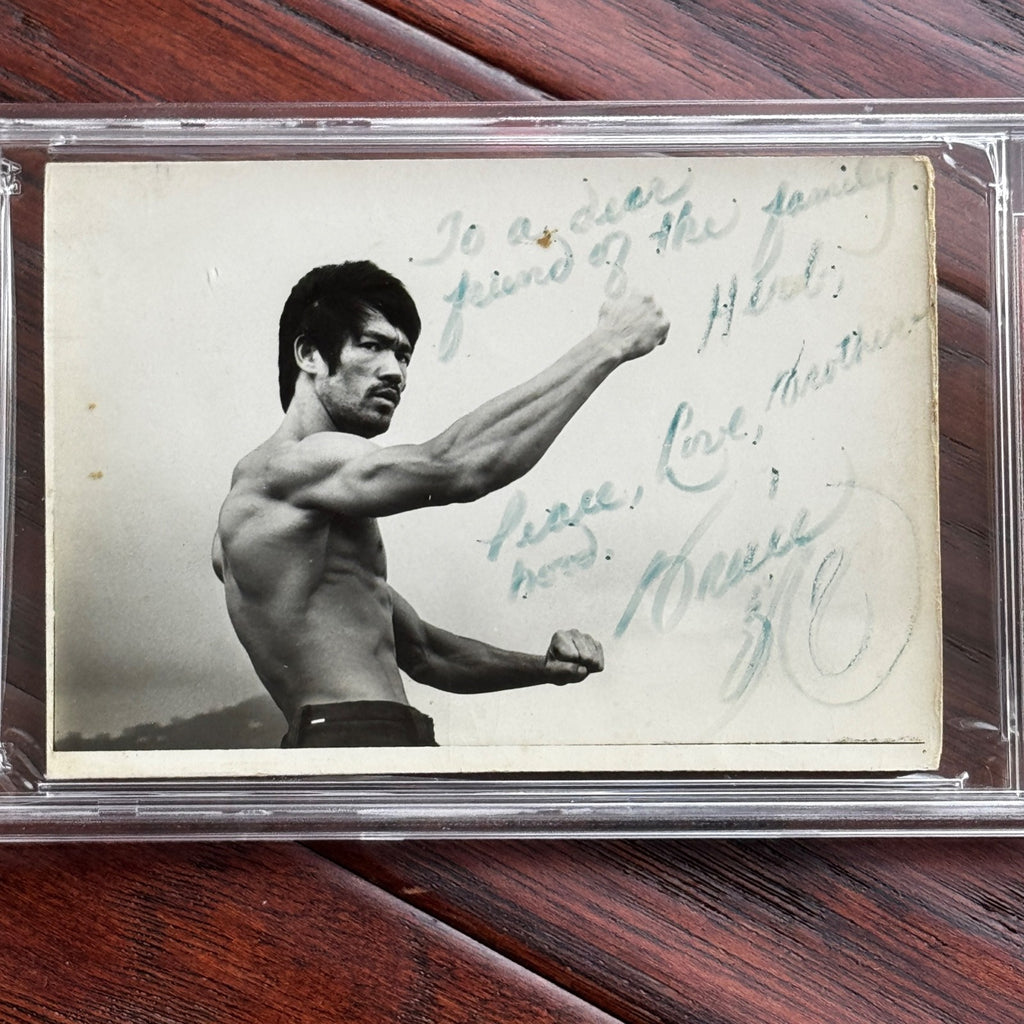 To a dear
friend of the family
Herb,
Peace, Love, Brother
hood.
Bruce